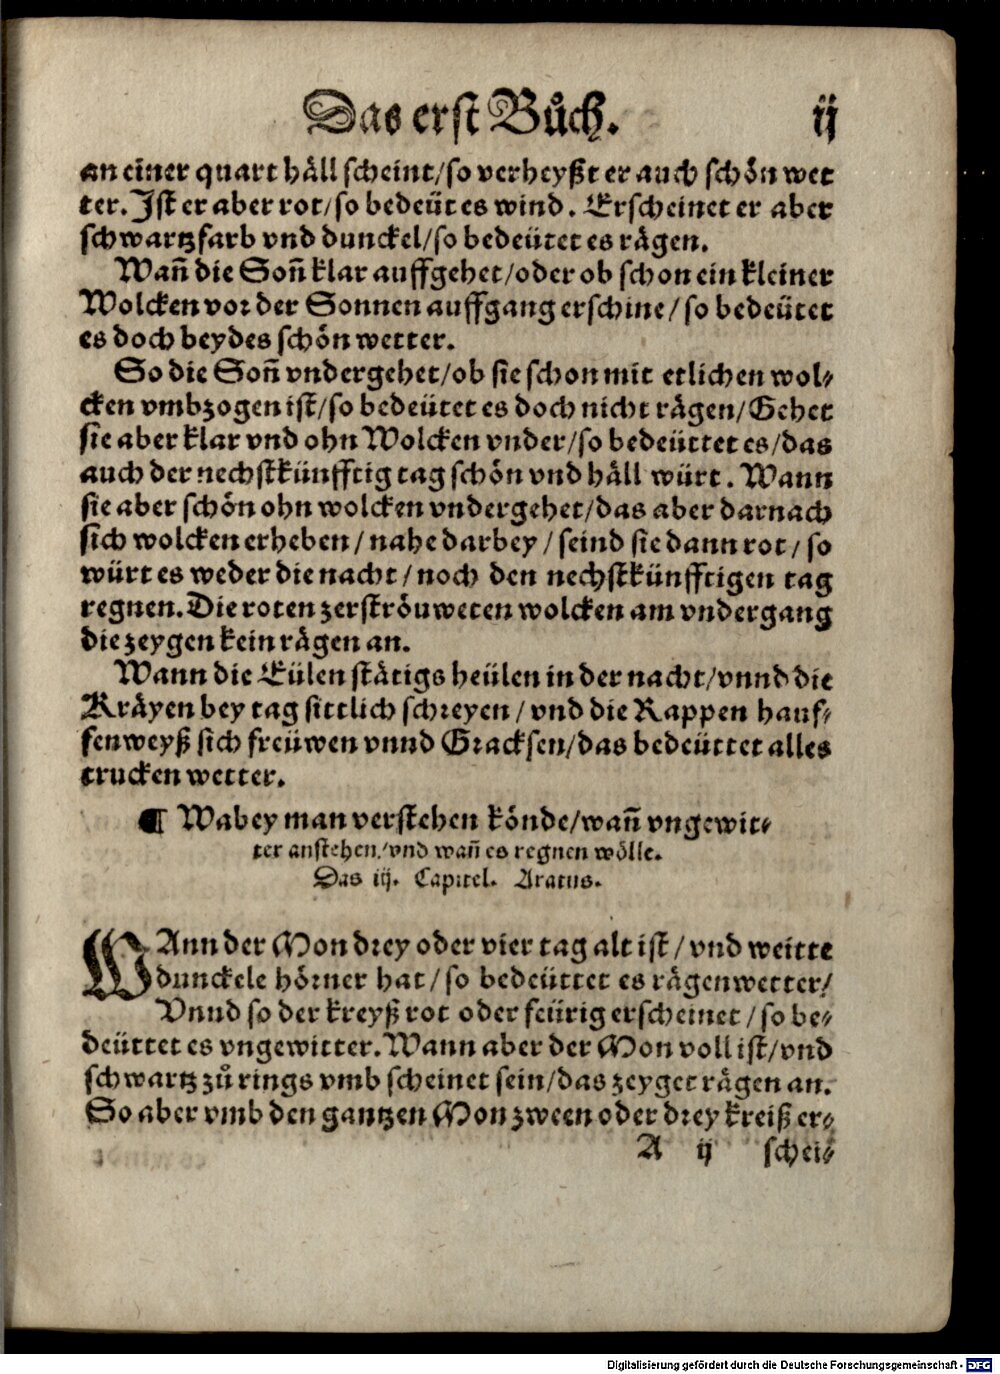 Das erst Bůch. ij
an einer quart håll scheint/so verheyßt er auch schön wet
ter. Ist er aber rot/so bedeüt es wind. Erscheinet er aber
schwartzfarb vnd dunckel/so bedeütet es rägen.
Wañ die Soñ klar auffgehet/oder ob schon ein kleiner
Wolcken vor der Sonnen auffgang erschine/so bedeütet
es doch beydes schön wetter.
So die Soñ vndergehet/ob sie schon mit etlichen wol⸗
cken vmbzogen ist/so bedeütet es doch nicht rägen/Gehet
sie aber klar vnd ohn Wolcken vnder/so bedeüttet es/das
auch der nechstkünfftig tag schön vnd häll würt. Wann
sie aber schön ohn wolcken vndergehet/das aber darnach
sich wolcken erheben/nahe darbey/seind sie dann rot/so
würt es weder die nacht/noch den nechstkünfftigen tag
regnen. Die roten zerströuweten wolcken am vndergang
die zeygen kein rägen an.
Wann die Eülen stätigs heülen in der nacht/vnnd die
Kräyen bey tag sittlich schreyen/vnd die Rappen hauf⸗
fenweyß sich freüwen vnnd Gracksen/das bedeüttet alles
trucken wetter.
¶ Wabey man verstehen könde/wañ vngewit⸗
ter anstehen/vnd wañ es regnen wölle.
Das iij. Capitel. Aratus.
WAnn der Mon drey oder vier tag alt ist/vnd weitte
dunckele hörner hat/so bedeüttet es rägenwetter/
Vnnd so der kreyß rot oder feürig erscheinet/so be⸗
deüttet es vngewitter. Wann aber der Mon voll ist/vnd
schwartz zů rings vmb scheinet sein/das zeyget rägen an.
So aber vmb den gantzen Mon zween oder drey kreiß er⸗
A ij schei⸗
Digitalisierung gefördert durch die Deutsche Forschungsgemeinschaft - DFG